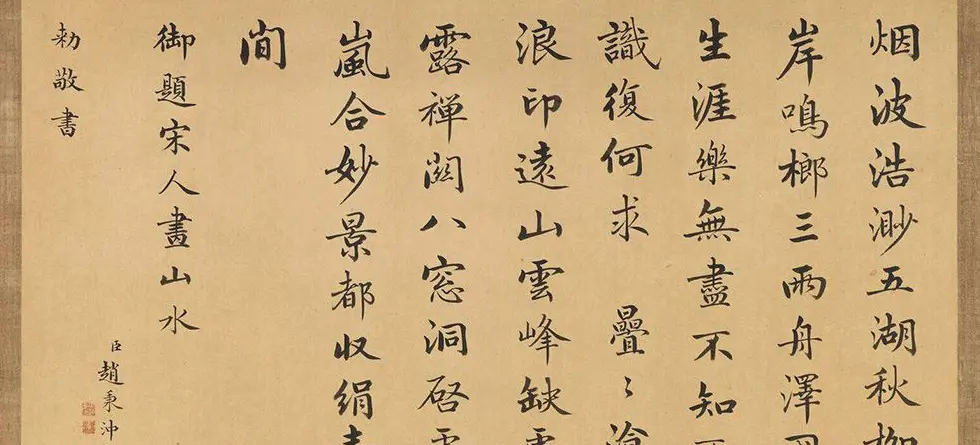 烟波浩渺五湖秋
岸鳴榔三兩舟澤
生涯樂無盡不知
識復何求 疊〻滄
浪印遠山雲峰缺
露禪闕八窓洞啓
嵐合妙景都收絹
間
御題宋人畫山水
臣趙秉沖
勅敬書